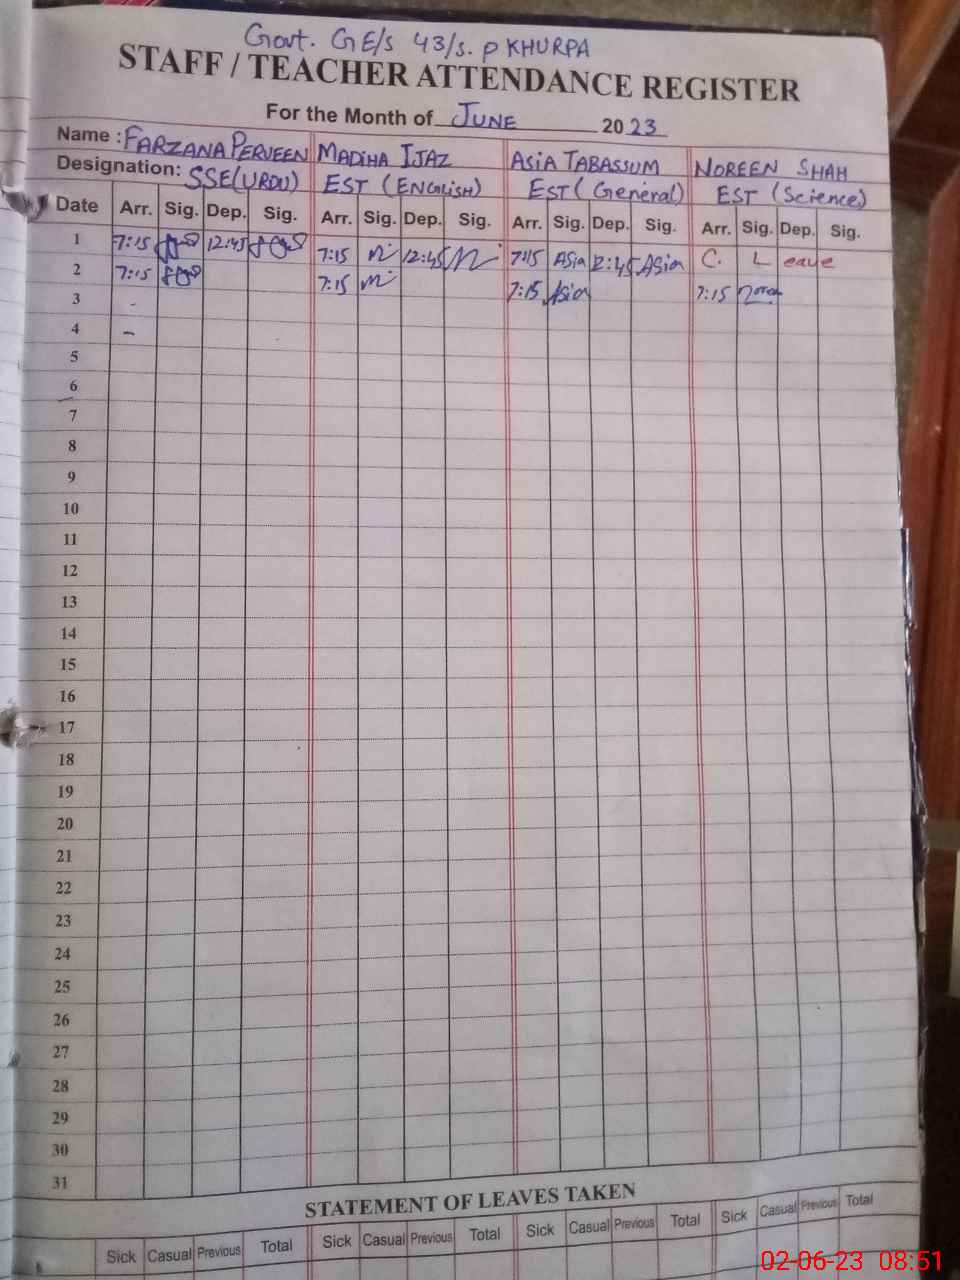 Govt. GE/s 43/s.p KHURPA
STAFF / TEACHER ATTENDANCE REGISTER
For the Month of JUNE 2023
Name : FARZANA PERVEEN MADIHA IJAZ ASIA TABASSUM NOREEN SHAH
Designation: SSE(URDU) EST (ENGlish) EST (General) EST (Science)
Date Arr. Sig. Dep. Sig. Arr. Sig. Dep. Sig. Arr. Sig. Dep. Sig. Arr. Sig. Dep. Sig.
1 7:15 12:45 7:15 12:45 7:15 Asia 12:45 Asia C. Leave
2 7:15 7:15 7:15 Asia 7:15
3 -
4 -
5
6
7
8
9
10
11
12
13
14
15
16
17
18
19
20
21
22
23
24
25
26
27
28
29
30
31
STATEMENT OF LEAVES TAKEN
Sick Casual Previous Total Sick Casual Previous Total Sick Casual Previous Total Sick Casual Previous Total
02-06-23 08:51